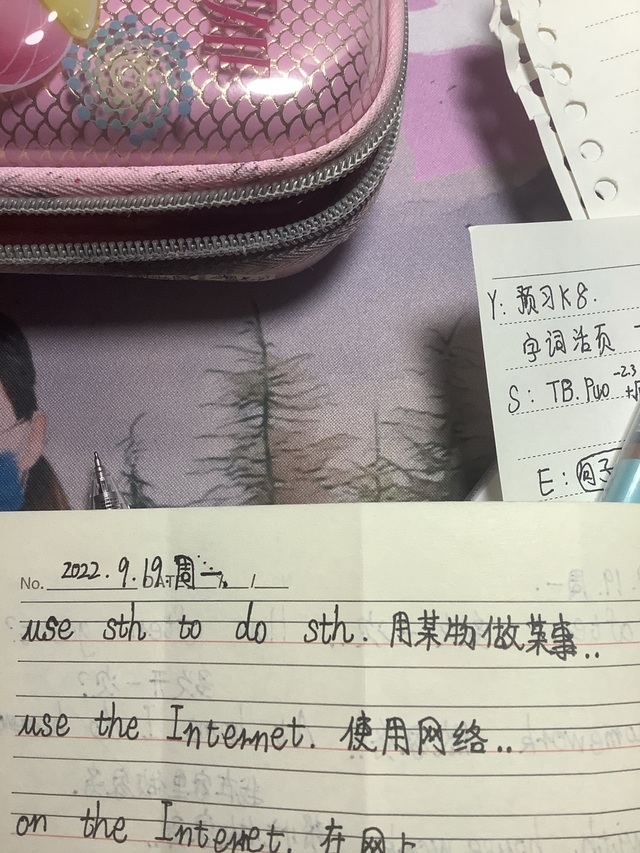 Y: 预习K8.
字词活页
S: TB.P40 -2.3
E: 句子
No. 2022.9.19.周一.
use sth to do sth. 用某物做某事..
use the Internet. 使用网络..
on the Internet. 在网上